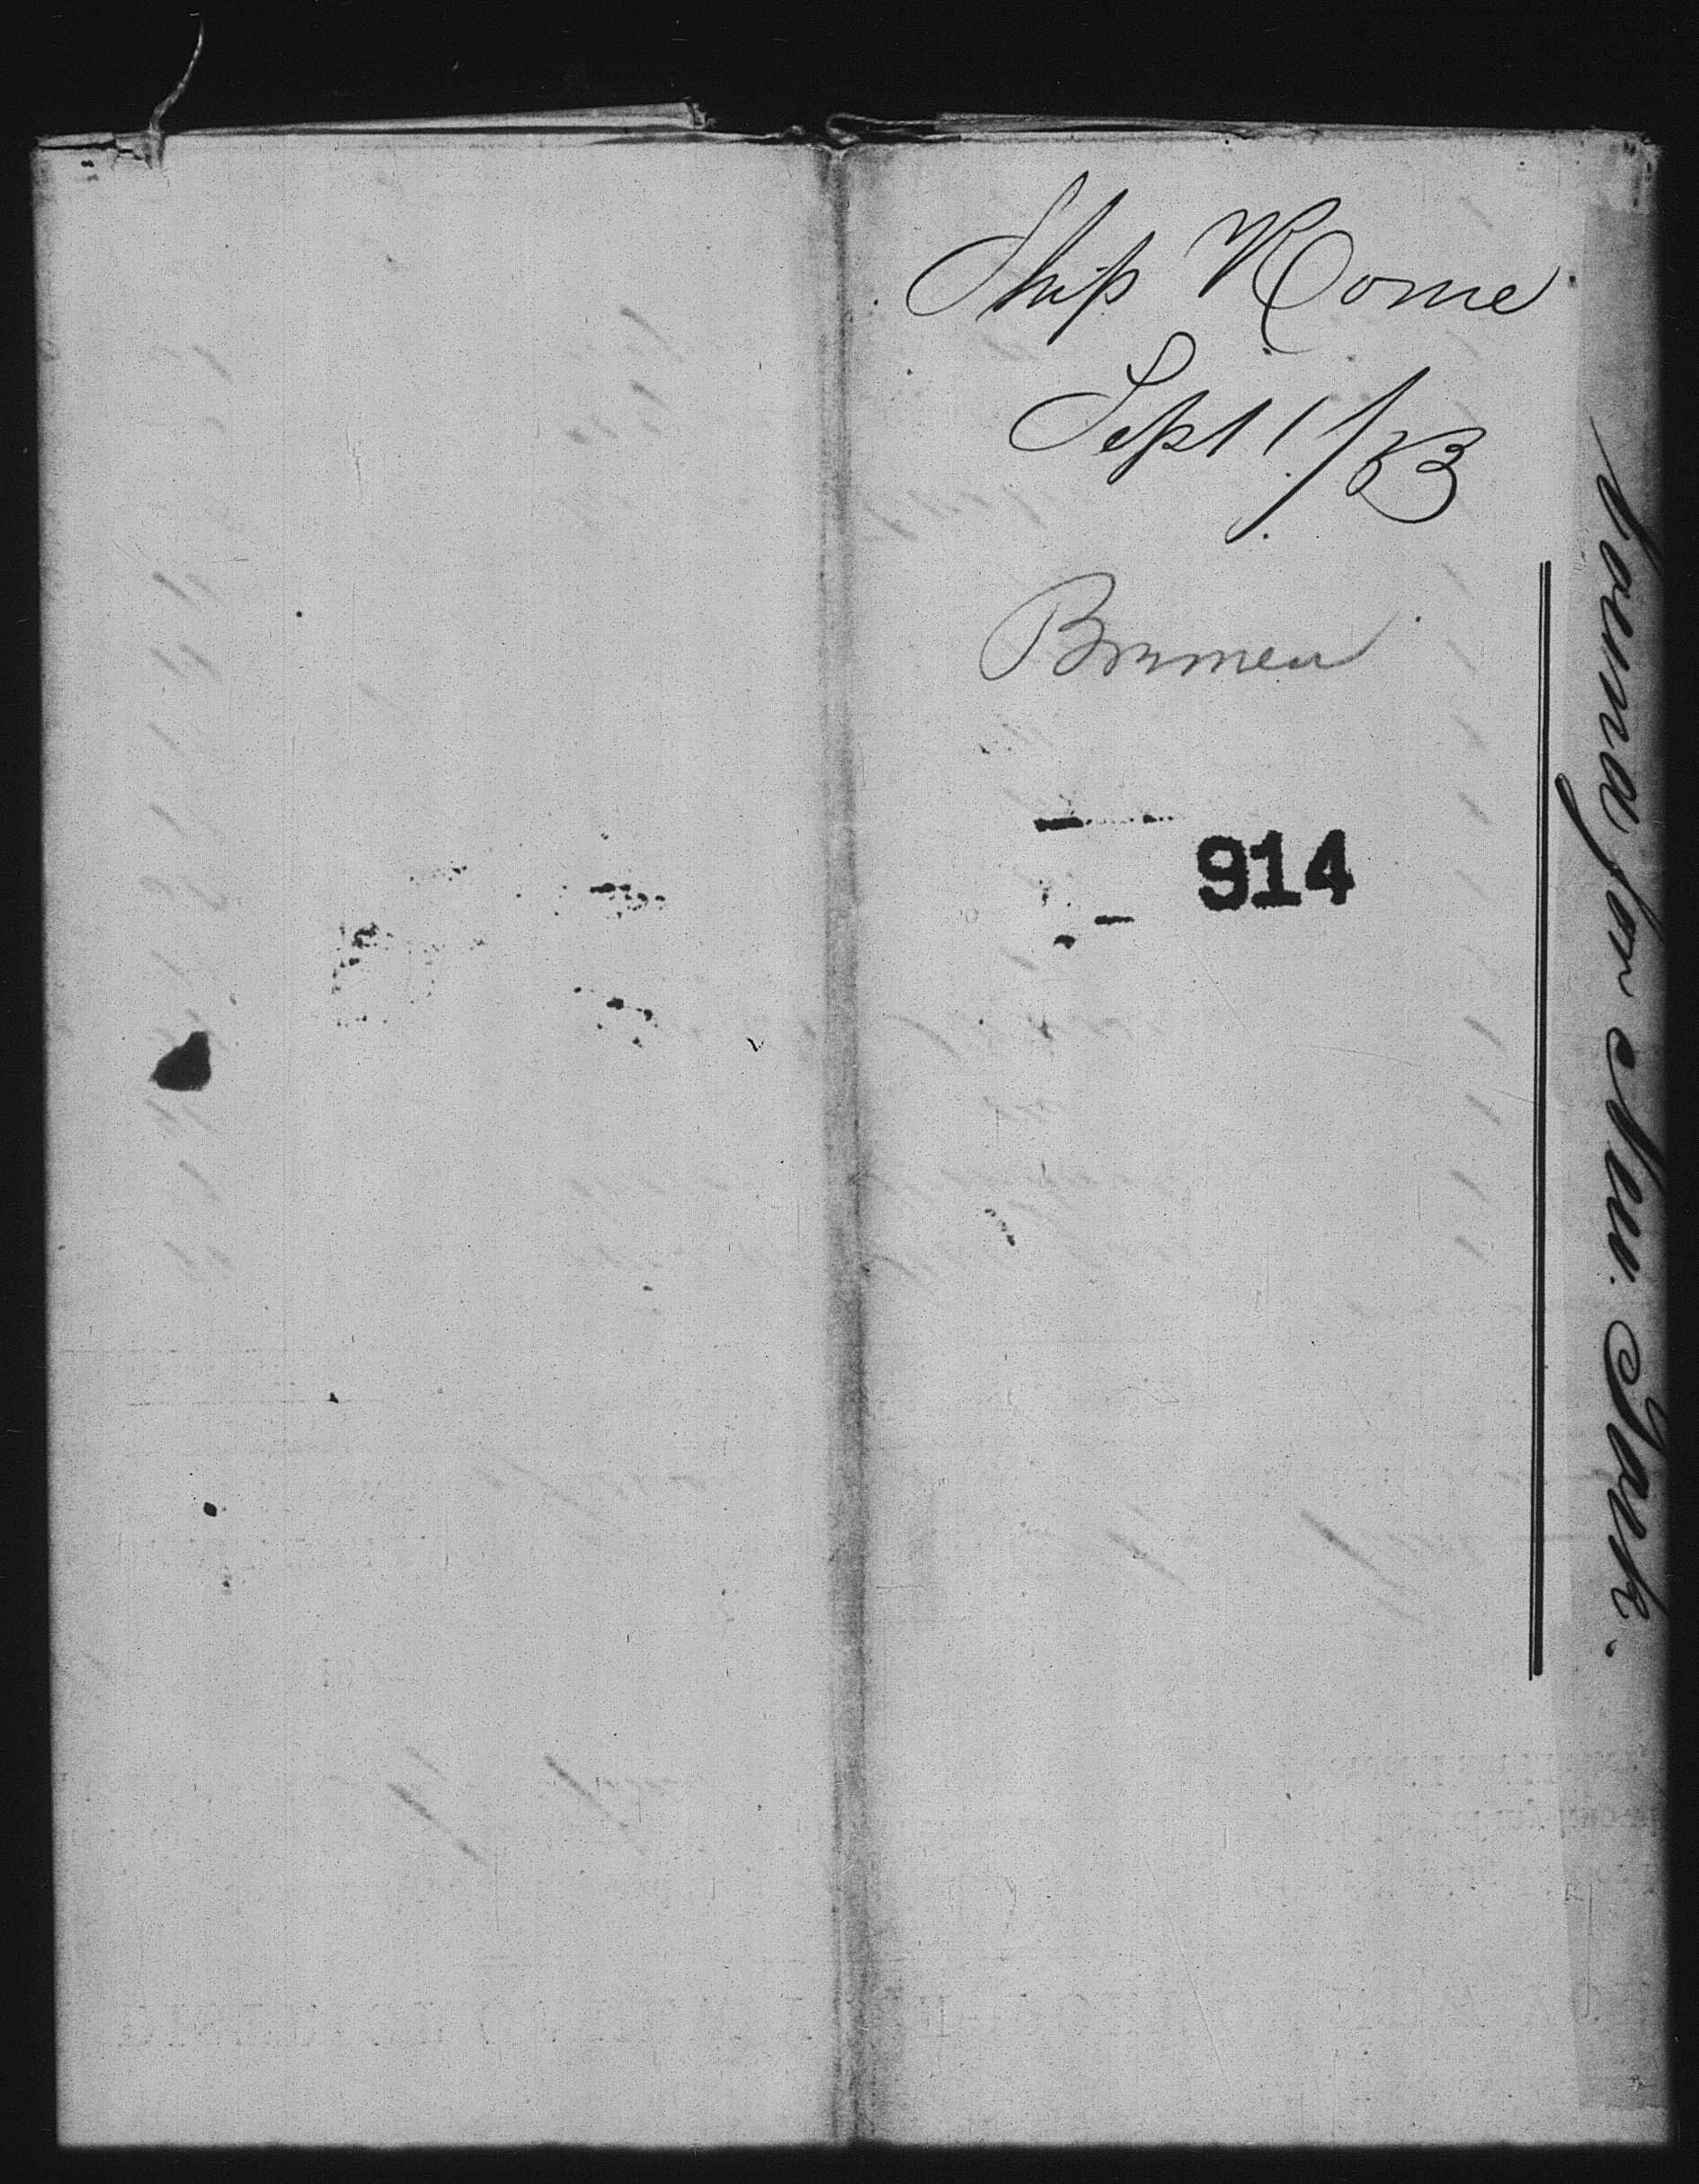 Ship Rome
Sept 1/53
Bremen
914
for New York.